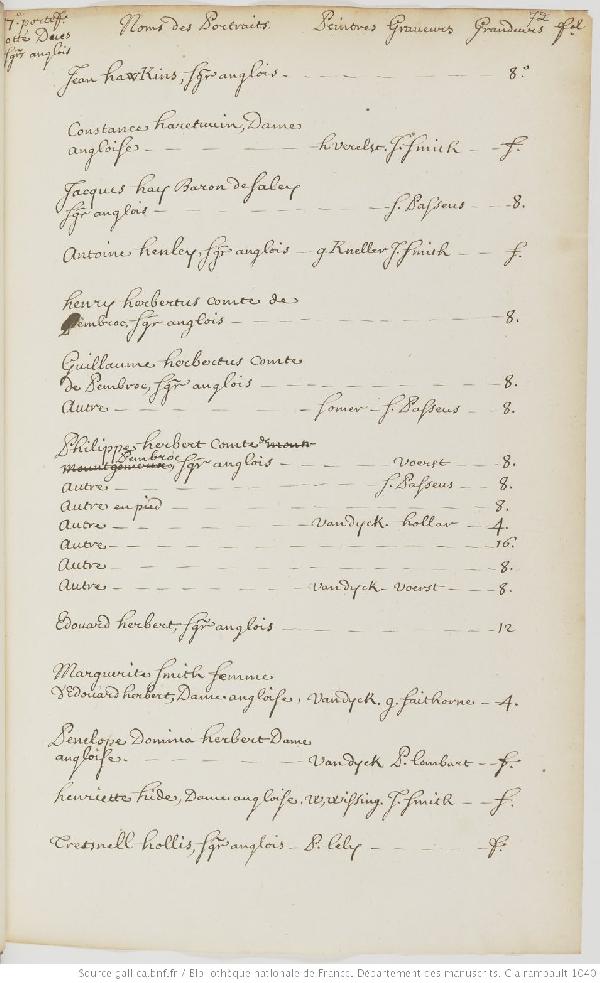 72
7.e portef.
Noms des Portraits. Peintres Graveurs Grandeurs fol
sgr. anglois
Jean hawkins, sgr. anglois - 8.o
Constance haretwin, Dame
angloise - h. verelst. J. smith - f.
Jacques hay Baron de saley
sgr. anglois - s. Passeus - 8.
Antoine henley, sgr. anglois - g Kneller J. smith - f.
henry herbertus comte de
Pembroc, sgr. anglois - 8.
Guillaume herbertus comte
de Pembroc, sgr. anglois - 8.
Autre - somer - s. Passeus - 8.
Philippe herbert comte de mont
Pembroc
mountgomeri, sgr. anglois - voerst - 8.
Autre - s. Passeus - 8.
Autre en pied - 8.
Autre - vandyck. hollar - 4.
Autre - 16.
Autre - 8.
Autre - vandyck - voerst - 8.
Edouard herbert, sgr. anglois - 12
Marguerite smith femme
d'Edouard herbert, Dame angloise, vandyck. g. faithorne - 4.
Penelope Domina herbert Dame
angloise. - vandyck P. lombart - f.
henriette hide, Dame angloise. W. wissing. J. smith - f.
hollis, sgr. anglois - P. lely - f.
Source gallica.bnf.fr / Bibliothèque nationale de France. Département des manuscrits. Clairambault 1040